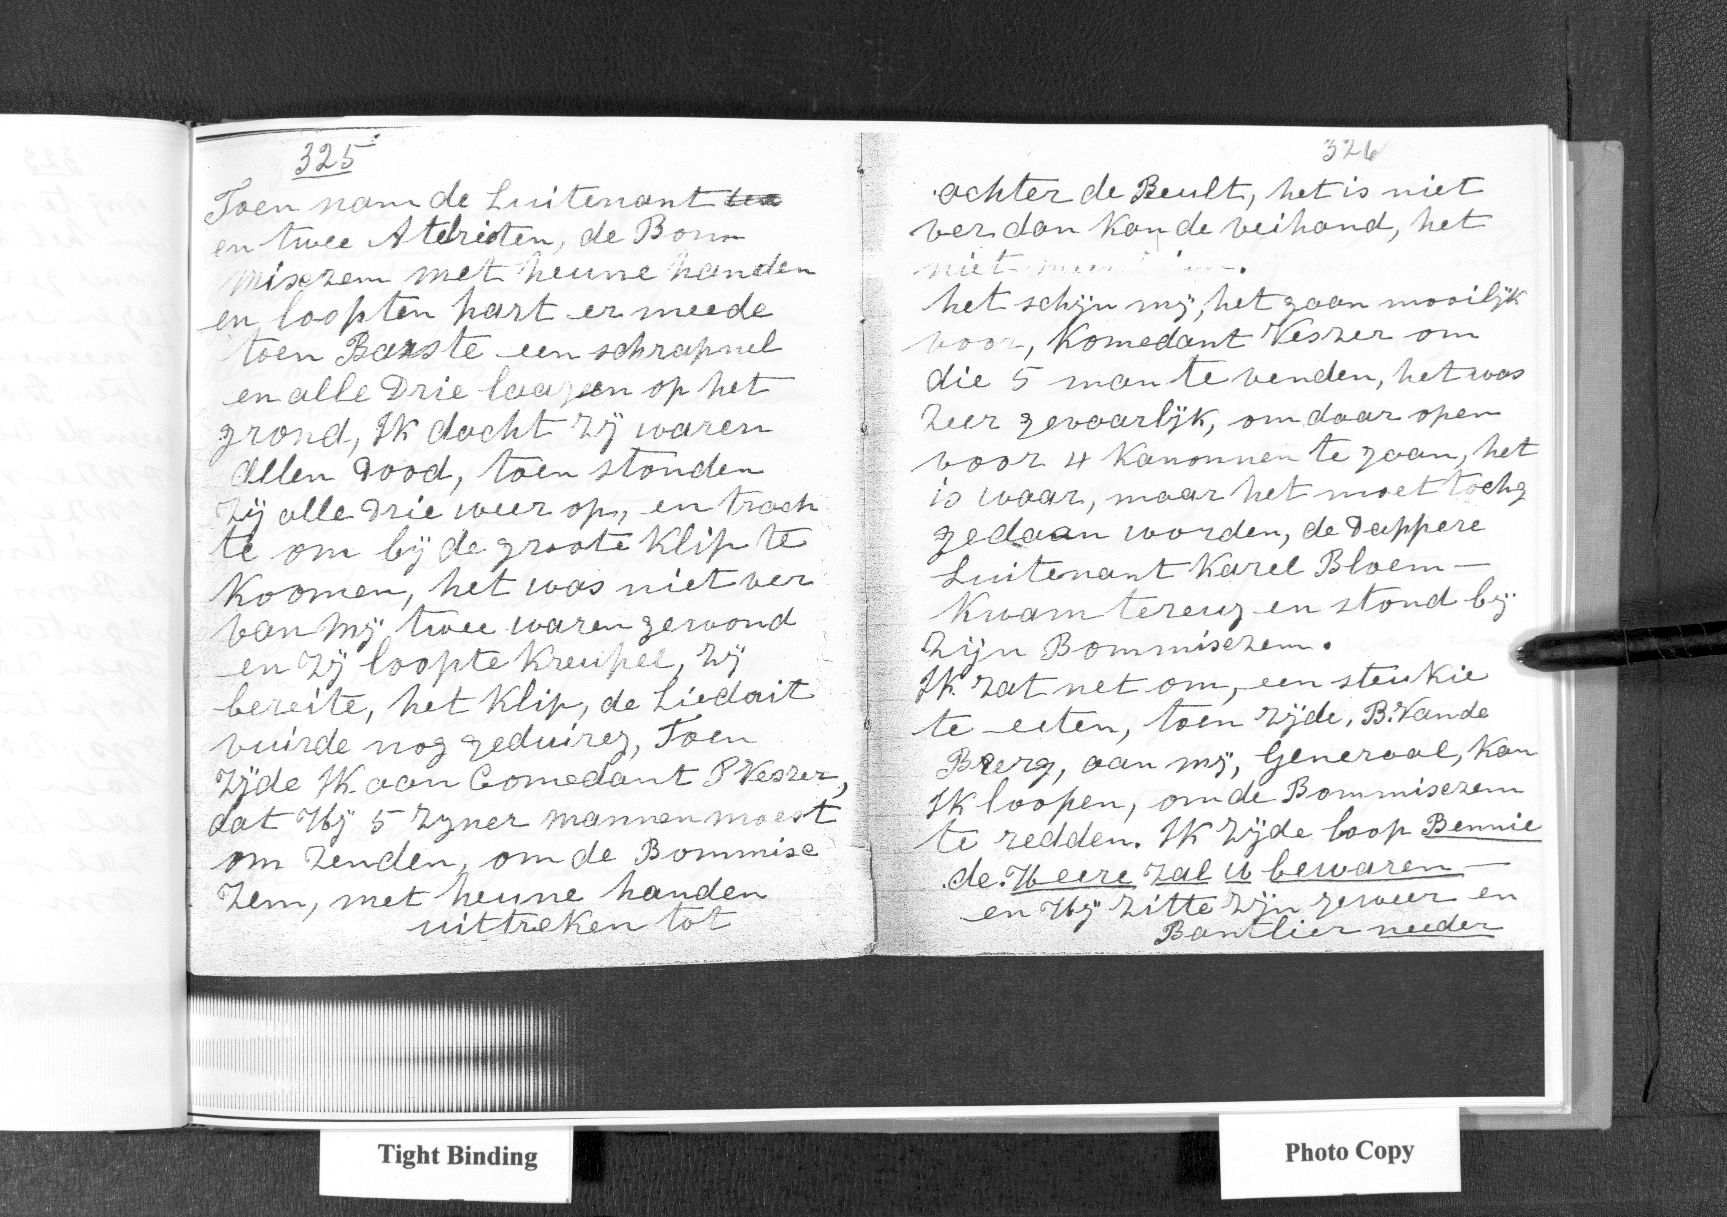 325
Toen nam de Luitenant
en twee Atelristen, de Bom
misezem met heune handen
en loopten hart er meede
toen Barste een schrapnel
en alle Drie laagen op het
grond, Ik dacht zij waren
allen Dood, toen stonden
zij alle Drie weer op, en trach
te om bij de groote Klip te
Koomen, het was niet ver
van mij twee waren gewond
en zij loopte Kreupel, zij
bereite, het Klip, de Liedait
vuirde nog geduireg, Toen
zijde Ik aan Comedant P Veszer,
dat Hij 5 zyner mannen moest
om zenden, om de Bommise
zem, met heune handen
uittreken tot
326
achter de Beult, het is niet
ver dan Kan de veihand, het
niet
het schijn mij, het gaan mooilijk
voor, Komedant Veszer om
die 5 man te venden, het was
zeer gevaarlijk, om daar open
voor 4 Kanonnen te gaan, het
is waar, maar het moet tochg
gedaan worden, de Dappere
Luitenant Karel Bloem —
Kwam tereug en stond bij
Zijn Bommisezem.
Ik zat net om, een steukie
te eeten, toen zijde, B. Vande
Berg, aan mij, Generaal, Kan
Ik loopen, om de Bommisezem
te redden. Ik zijde loop Bennie
de. Heere zal U bewaren —
en Hij zitte zijn geweer en
Bantlier needer
Tight Binding
Photo Copy